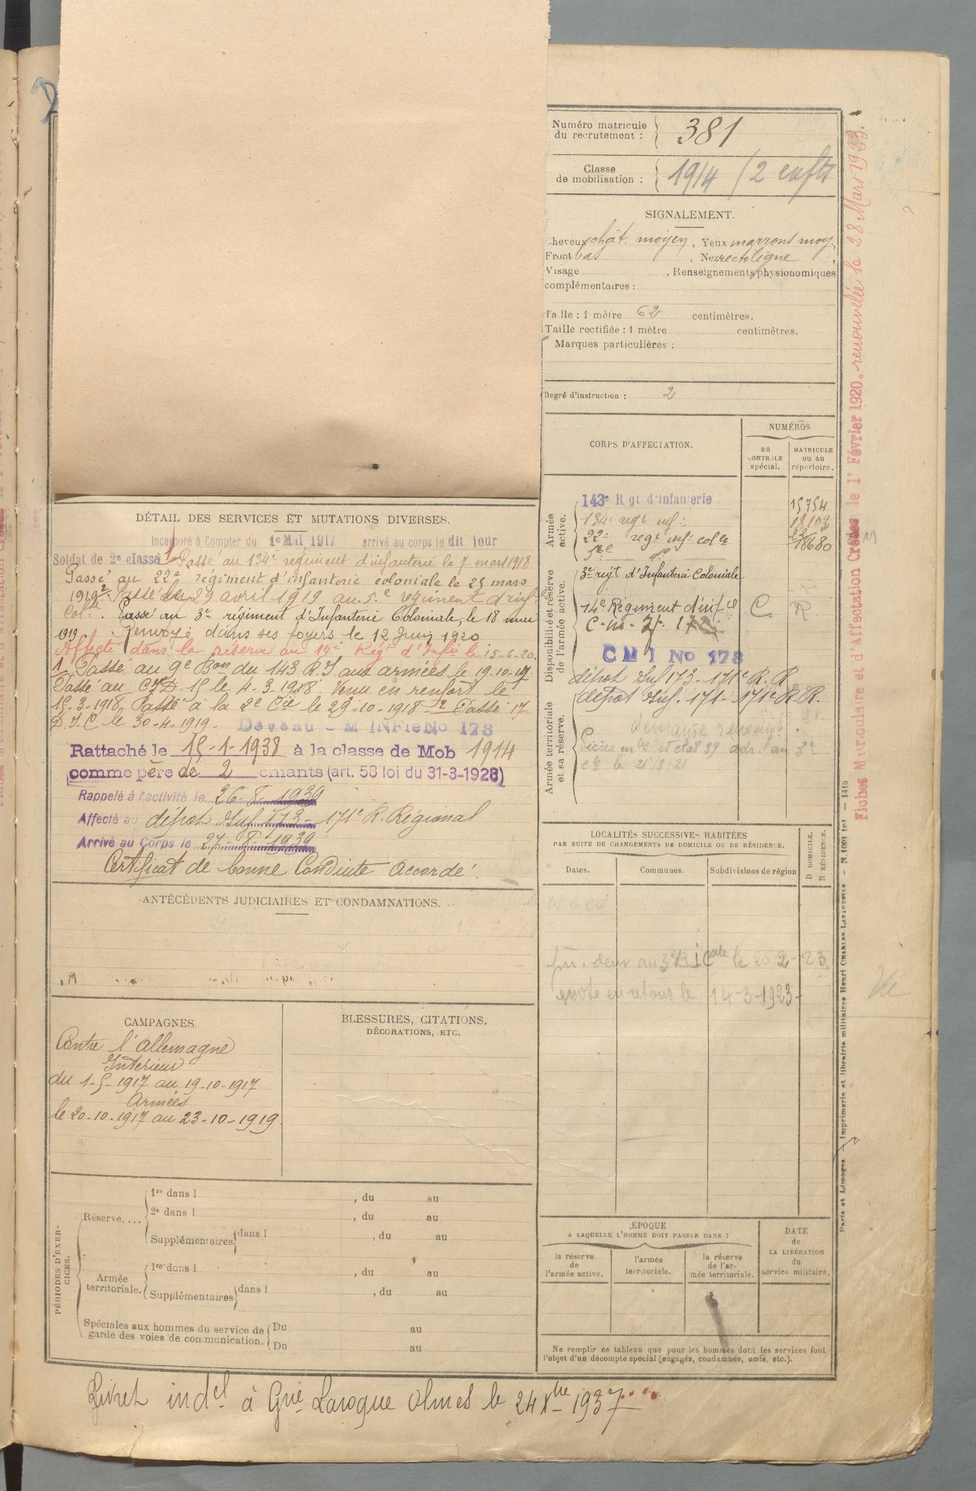 Numéro matricule du recrutement : 381
Classe de mobilisation : 1914 / 2 enfts
SIGNALEMENT.
Cheveux chât. moyen, Yeux marrons moy.
Front bas, Nez rectiligne,
Visage , Renseignements physionomiques
complémentaires :
Taille : 1 mètre 62 centimètres.
Taille rectifiée : 1 mètre centimètres.
Marques particulières :
Degré d'instruction : 2
CORPS D'AFFECTATION.
NUMÉROS
au CONTRÔLE spécial.
MATRICULE ou au répertoire.
Armée active.
143e Rgt d'infanterie 15754
134e regt inf.
22e regt inf colle
18680
Disponibilité et réserve de l'armée active.
3e regt d'Infanterie Coloniale
14e Régiment d'infie C R
CMI No 173
dépôt Inf 173 - 171e R.R.
dépôt Inf. 171 - 171e R.R.
Armée territoriale et sa réserve.
DÉTAIL DES SERVICES ET MUTATIONS DIVERSES.
Incorporé à Compter du 1er Mai 1917 arrivé au corps le dit jour
Soldat de 2e classe Passé au 134e régiment d'infanterie le 7 mars 1918
Passé au 22e régiment d'infanterie coloniale le 23 mars
1919 Passé le 29 avril 1919 au 5e régiment d'infie
Colle. Passé au 3e régiment d'Infanterie Coloniale, le 18 mai
1919. Renvoyé dans ses foyers le 12 Juin 1920
Affecté dans la réserve au 14e Régt d'Infie le 15-6-20.
1. Passé au 9e Bon du 143 R.I aux armées le 19-10-17
Passé au C.I.D. 15 le 4-3-1918 - Venu en renfort le
15-3-1918, Passé à la 2e Cie le 29-10-1918 Passé 17
D.I.C le 30-4-1919. Devenu M INFie No 173
Rattaché le 15-1-1938 à la classe de Mob 1914
comme père de 2 enfants (art. 58 loi du 31-3-1928)
Rappelé à l'activité le 26-8-1939
Affecté au dépôt Inf 173 - 171e R. Régional
Arrivé au Corps le 27-8-1939
Certificat de bonne Conduite Accordé.
ANTÉCÉDENTS JUDICIAIRES ET CONDAMNATIONS.
CAMPAGNES.
Contre l'Allemagne
Intérieur
du 1-5-1917 au 19-10-1917
Armées
le 20-10-1917 au 23-10-1919
BLESSURES, CITATIONS,
DÉCORATIONS, ETC.
LOCALITÉS SUCCESSIVES HABITÉES
PAR SUITE DE CHANGEMENTS DE DOMICILE OU DE RÉSIDENCE.
Dates. Communes. Subdivisions de région
D. DOMICILE.
R. RÉSIDENCE.
en retour le 14-3-1923-
PÉRIODES D'EXERCICES.
Réserve....
1re dans l , du au
2e dans l , du au
Supplémentaires dans l , du au
Armée territoriale.
1re dans l , du au
Supplémentaires dans l , du au
Spéciales aux hommes du service de
garde des voies de communication.
Du au
Du au
ÉPOQUE
A LAQUELLE L'HOMME DOIT PASSER DANS :
la réserve de l'armée active.
l'armée territoriale.
la réserve de l'armée territoriale.
DATE de LA LIBÉRATION du service militaire.
Ne remplir ce tableau que pour les hommes dont les services font
l'objet d'un décompte spécial (engagés, condamnés, omis, etc.).
Livret indel à Gie Laroque Olmes le 24 Xbre 1937
Fiches Matriculaire et d'Affectation Créées le 1er Février 1920. renouvelée le 28 Mars 1933.
Paris et Limoges. — Imprimerie et librairie militaires Henri CHARLES-LAVAUZELLE